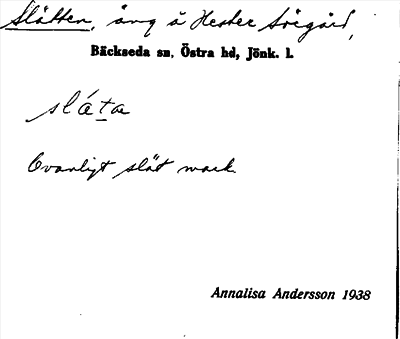 Slätten, äng å Hester Sörgård,
Bäckseda sn, Östra hd, Jönk. l.
slá́ta
Ovanligt slät mark.
Annalisa Andersson 1938